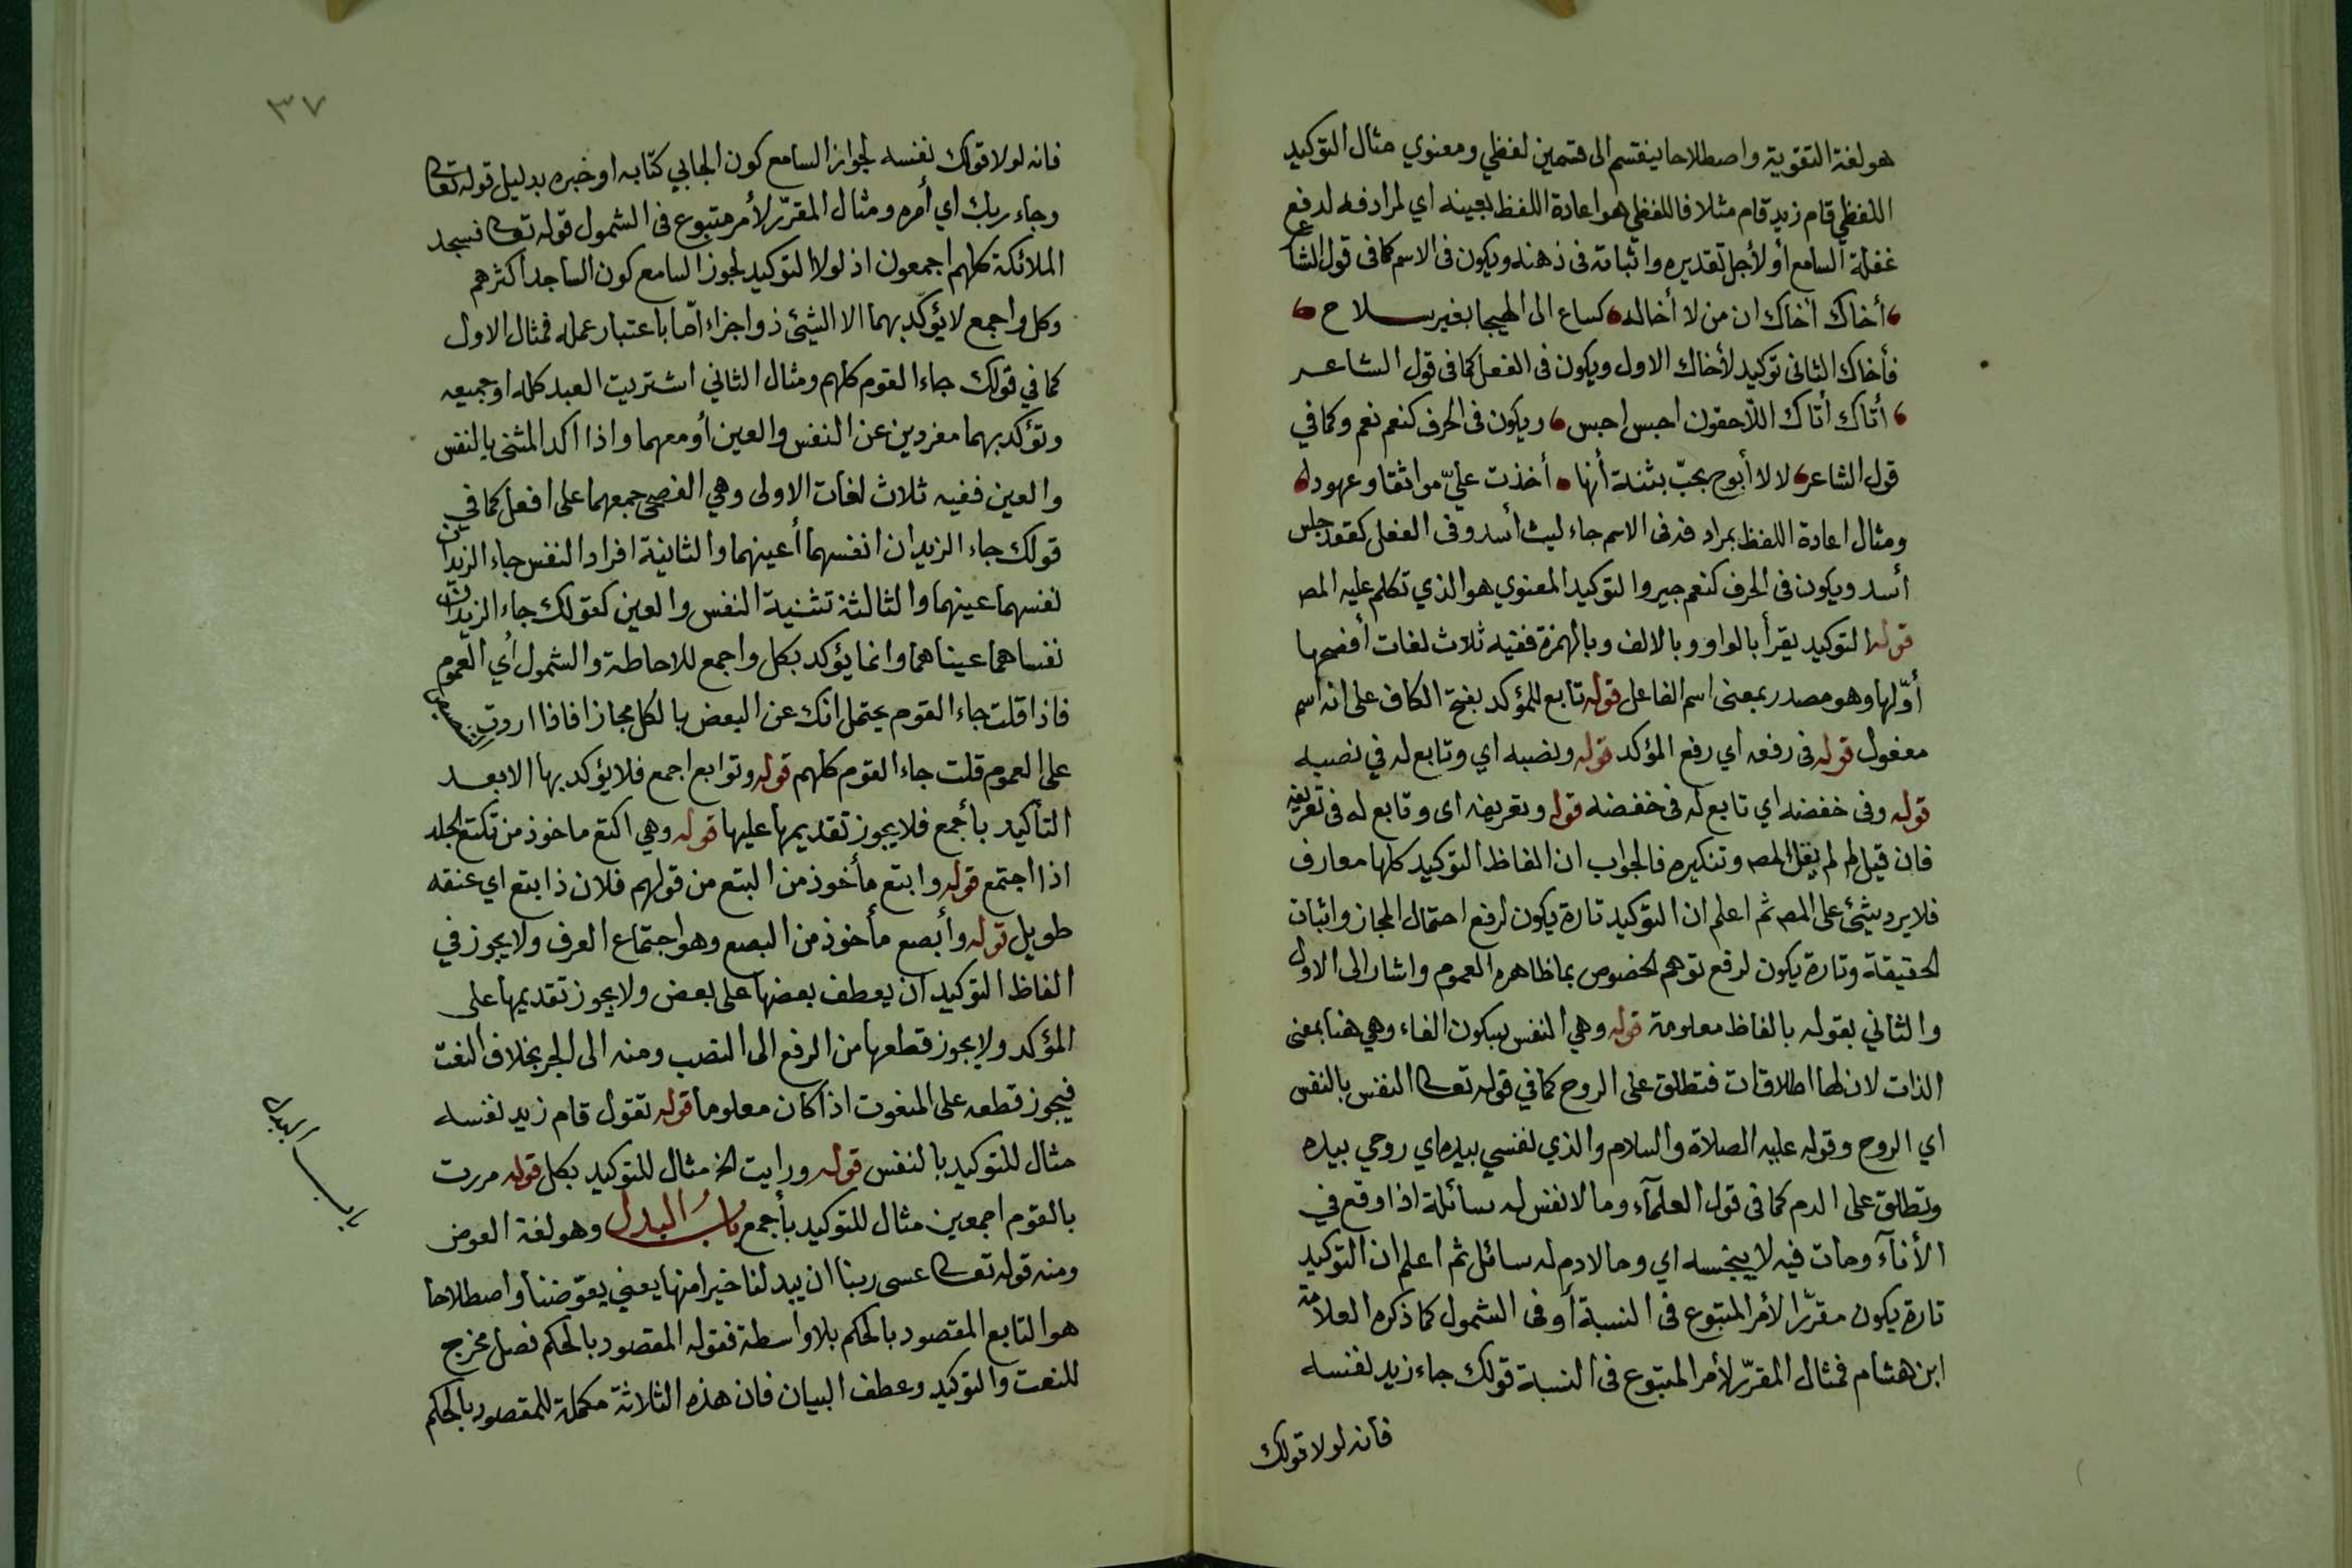 هو لغة التقوية واصطلاحا ينقسم الى قسمين لفظي ومعنوي مثال التوكيد
اللفظي قام زيد قام مثلا فاللفظي هو اعادة اللفظ بعينه اي لمرادفه لدفع
غفلة السامع أو لأجل تقديره واثباته في ذهنه ويكون في الاسم كما في قول الشاعر
أخاك أخاك ان من لا أخاله كساع الى الهيجا بغير سلاح
فأخاك الثاني توكيد لأخاك الاول ويكون في الفعل كما في قول الشاعر
أتاك أتاك اللاحقون احبس احبس ويكون في الحرف كنعم نعم وكما في
قول الشاعر لا لا أبوح بحبّ بثنة أنها أخذت عليّ مواثقا وعهودا
ومثال اعادة اللفظ بمرادفه في الاسم جاء ليث أسد وفي الفعل كقعد جلس
أسد ويكون في الحرف كنعم جير والتوكيد المعنوي هو الذي تكلم عليه المص
قوله التوكيد يقرأ بالواو وبالالف وبالهمزة ففيه ثلاث لغات أفصحها
أوّلها وهو مصدر بمعنى اسم الفاعل قوله تابع للمؤكد بفتح الكاف على انه اسم
مفعول قوله في رفعه اي رفع المؤكد قوله ونصبه اي وتابع له في نصبه
قوله وفى خفضه اي تابع له فى خفضه قوله وتعريفه اى وتابع له فى تعريفه
فان قيل لم لم يقل المص وتنكيره فالجواب ان الفاظ التوكيد كلها معارف
فلا يرد شيئ على المص ثم اعلم ان التوكيد تارة يكون لرفع احتمال المجاز واثبات
الحقيقة وتارة يكون لرفع توهم الخصوص بما ظاهره العموم واشار الى الاول
والثاني بقوله بالفاظ معلومة قوله وهي النفس بسكون الفاء وهي هنا بمعنى
الذات لان لها اطلاقات فتطلق على الروح كما في قوله تعالى النفس بالنفس
اي الروح وقوله عليه الصلاة والسلام والذي نفسي بيده اي روحي بيده
وتطلق على الدم كما فى قول العلمآء وما لا نفس له سائلة اذا وقع في
الأنآء ومات فيه لا ينجسه اي وما لا دم له سائل ثم اعلم ان التوكيد
تارة يكون مقرّرا لأمر المتبوع فى النسبة أو فى الشمول كما ذكره العلامة
ابن هشام فمثال المقرّر لأمر المتبوع فى النسبة قولك جاء زيد نفسه
فانه لولا قولك
٣٧
فانه لولا قولك نفسه لجواز السامع كون الجابي كتابه او خبره بدليل قوله تعالى
وجاء ربك اي أمره ومثال المقرّر لأمر متبوع فى الشمول قوله تعالى فسجد
الملائكة كلهم اجمعون اذ لولا التوكيد لجوز السامع كون الساجد أكثرهم
وكل واجمع لا يؤكد بهما الا الشيئ ذو اجزاء امّا باعتبار عمله فمثال الاول
كما في قولك جاء القوم كلهم ومثال الثاني اشتريت العبد كله او جميعه
وتؤكد بهما مفردين عن النفس والعين أو معهما واذا اكد المثنى بالنفس
والعين ففيه ثلاث لغات الاولى وهي الفصحى جمعهما على افعل كما في
قولك جاء الزيدان انفسهما أعينهما والثانية افراد النفس جاء الزيدان
نفسهما عينهما والثالثة تثنية النفس والعين كقولك جاء الزيدان
نفساهما عيناهما وانما يؤكد بكل واجمع للاحاطة والشمول أي العموم
فاذا قلت جاء القوم يحتمل انك عن البعض بالكل مجازا فاذا اردت
على العموم قلت جاء القوم كلهم قوله وتوابع اجمع فلا يؤكد بها الا بعد
التأكيد بأجمع فلا يجوز تقديمها عليها قوله وهي اكتع ماخوذ من تكتع الجلد
اذا اجتمع قوله وابتع مأخوذ من البتع من قولهم فلان ذا بتع اي عنقه
طويل قوله وأبصع مأخوذ من البصع وهو اجتماع العرف ولا يجوز في
الفاظ التوكيد ان يعطف بعضها على بعض ولا يجوز تقديمها على
المؤكد ولا يجوز قطعها من الرفع الى النصب ومنه الى الجر بخلاف النعت
فيجوز قطعه على المنعوت اذا كان معلوما قوله تقول قام زيد نفسه
مثال للتوكيد بالنفس قوله ورايت الخ مثال للتوكيد بكل قوله مررت
بالقوم اجمعين مثال للتوكيد بأجمع باب البدل وهو لغة العوض
ومنه قوله تعالى عسى ربنا ان يبدلنا خيرا منها يعني يعوّضنا واصطلاحا
هو التابع المقصود بالحكم بلا واسطة فقوله المقصود بالحكم فصل مخرج
للنعت والتوكيد وعطف البيان فان هذه الثلاثة مكملة للمقصود بالحكم
باب البدل